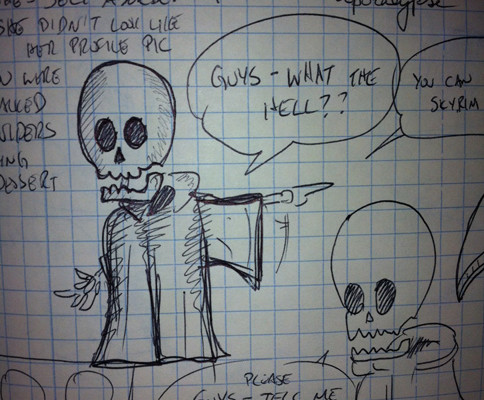 apocalypse
SHE DIDN'T LOOK LIKE
HER PROFILE PIC
WERE
ALKED
ING
DESSERT
GUYS - WHAT THE
HELL??
YOU CAN
SKYRIM
PLEASE
GUYS - TELL ME